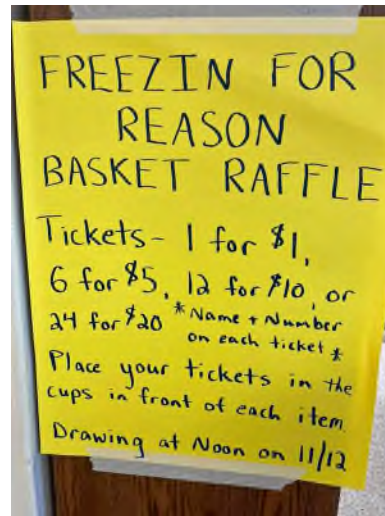 FREEZIN FOR
REASON
BASKET RAFFLE
Tickets- 1 for $1,
6 for $5, 12 for $10, or
24 for $20 *Name + Number
on each ticket *
Place your tickets in the
cups in front of each item.
Drawing at Noon on 11/12